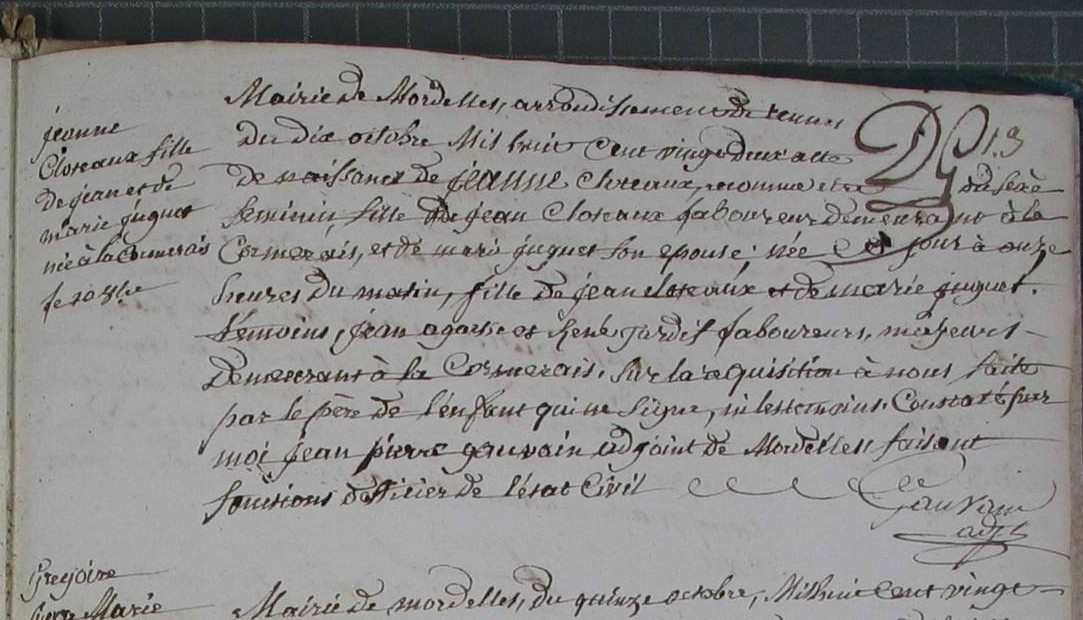 jeanne
Cloteaux fille
de jean et de
marie juguet
née à la Cormerais
le 10 8bre
Mairie de Mordelles, arrondissement de rennes
Du dix octobre Mil huit Cent vingt deux acte
de naissance de jeanne Cloteaux, reconnue etre du sexe
feminin, fille de jean Cloteaux laboureur demeurant à la
Cormerais, et de marie juguet son epouse; née ce jour à onze
heures du matin, fille de jean cloteaux et de marie juguet.
témoins, jean agasse et René jardif laboureurs, majeurs
Demeurant à la Cormerais, sur la requisition à nous faite
par le père de l'enfant qui ne signe, ni les temoins. Constaté par
moi jean pierre gauvain adjoint de Mordelles faisant
fonctions d'officier de l'état Civil
Gauvain
adjt
Gregoire
pierre Marie
Mairie de mordelles, du quinze octobre, Mil huit Cent vingt